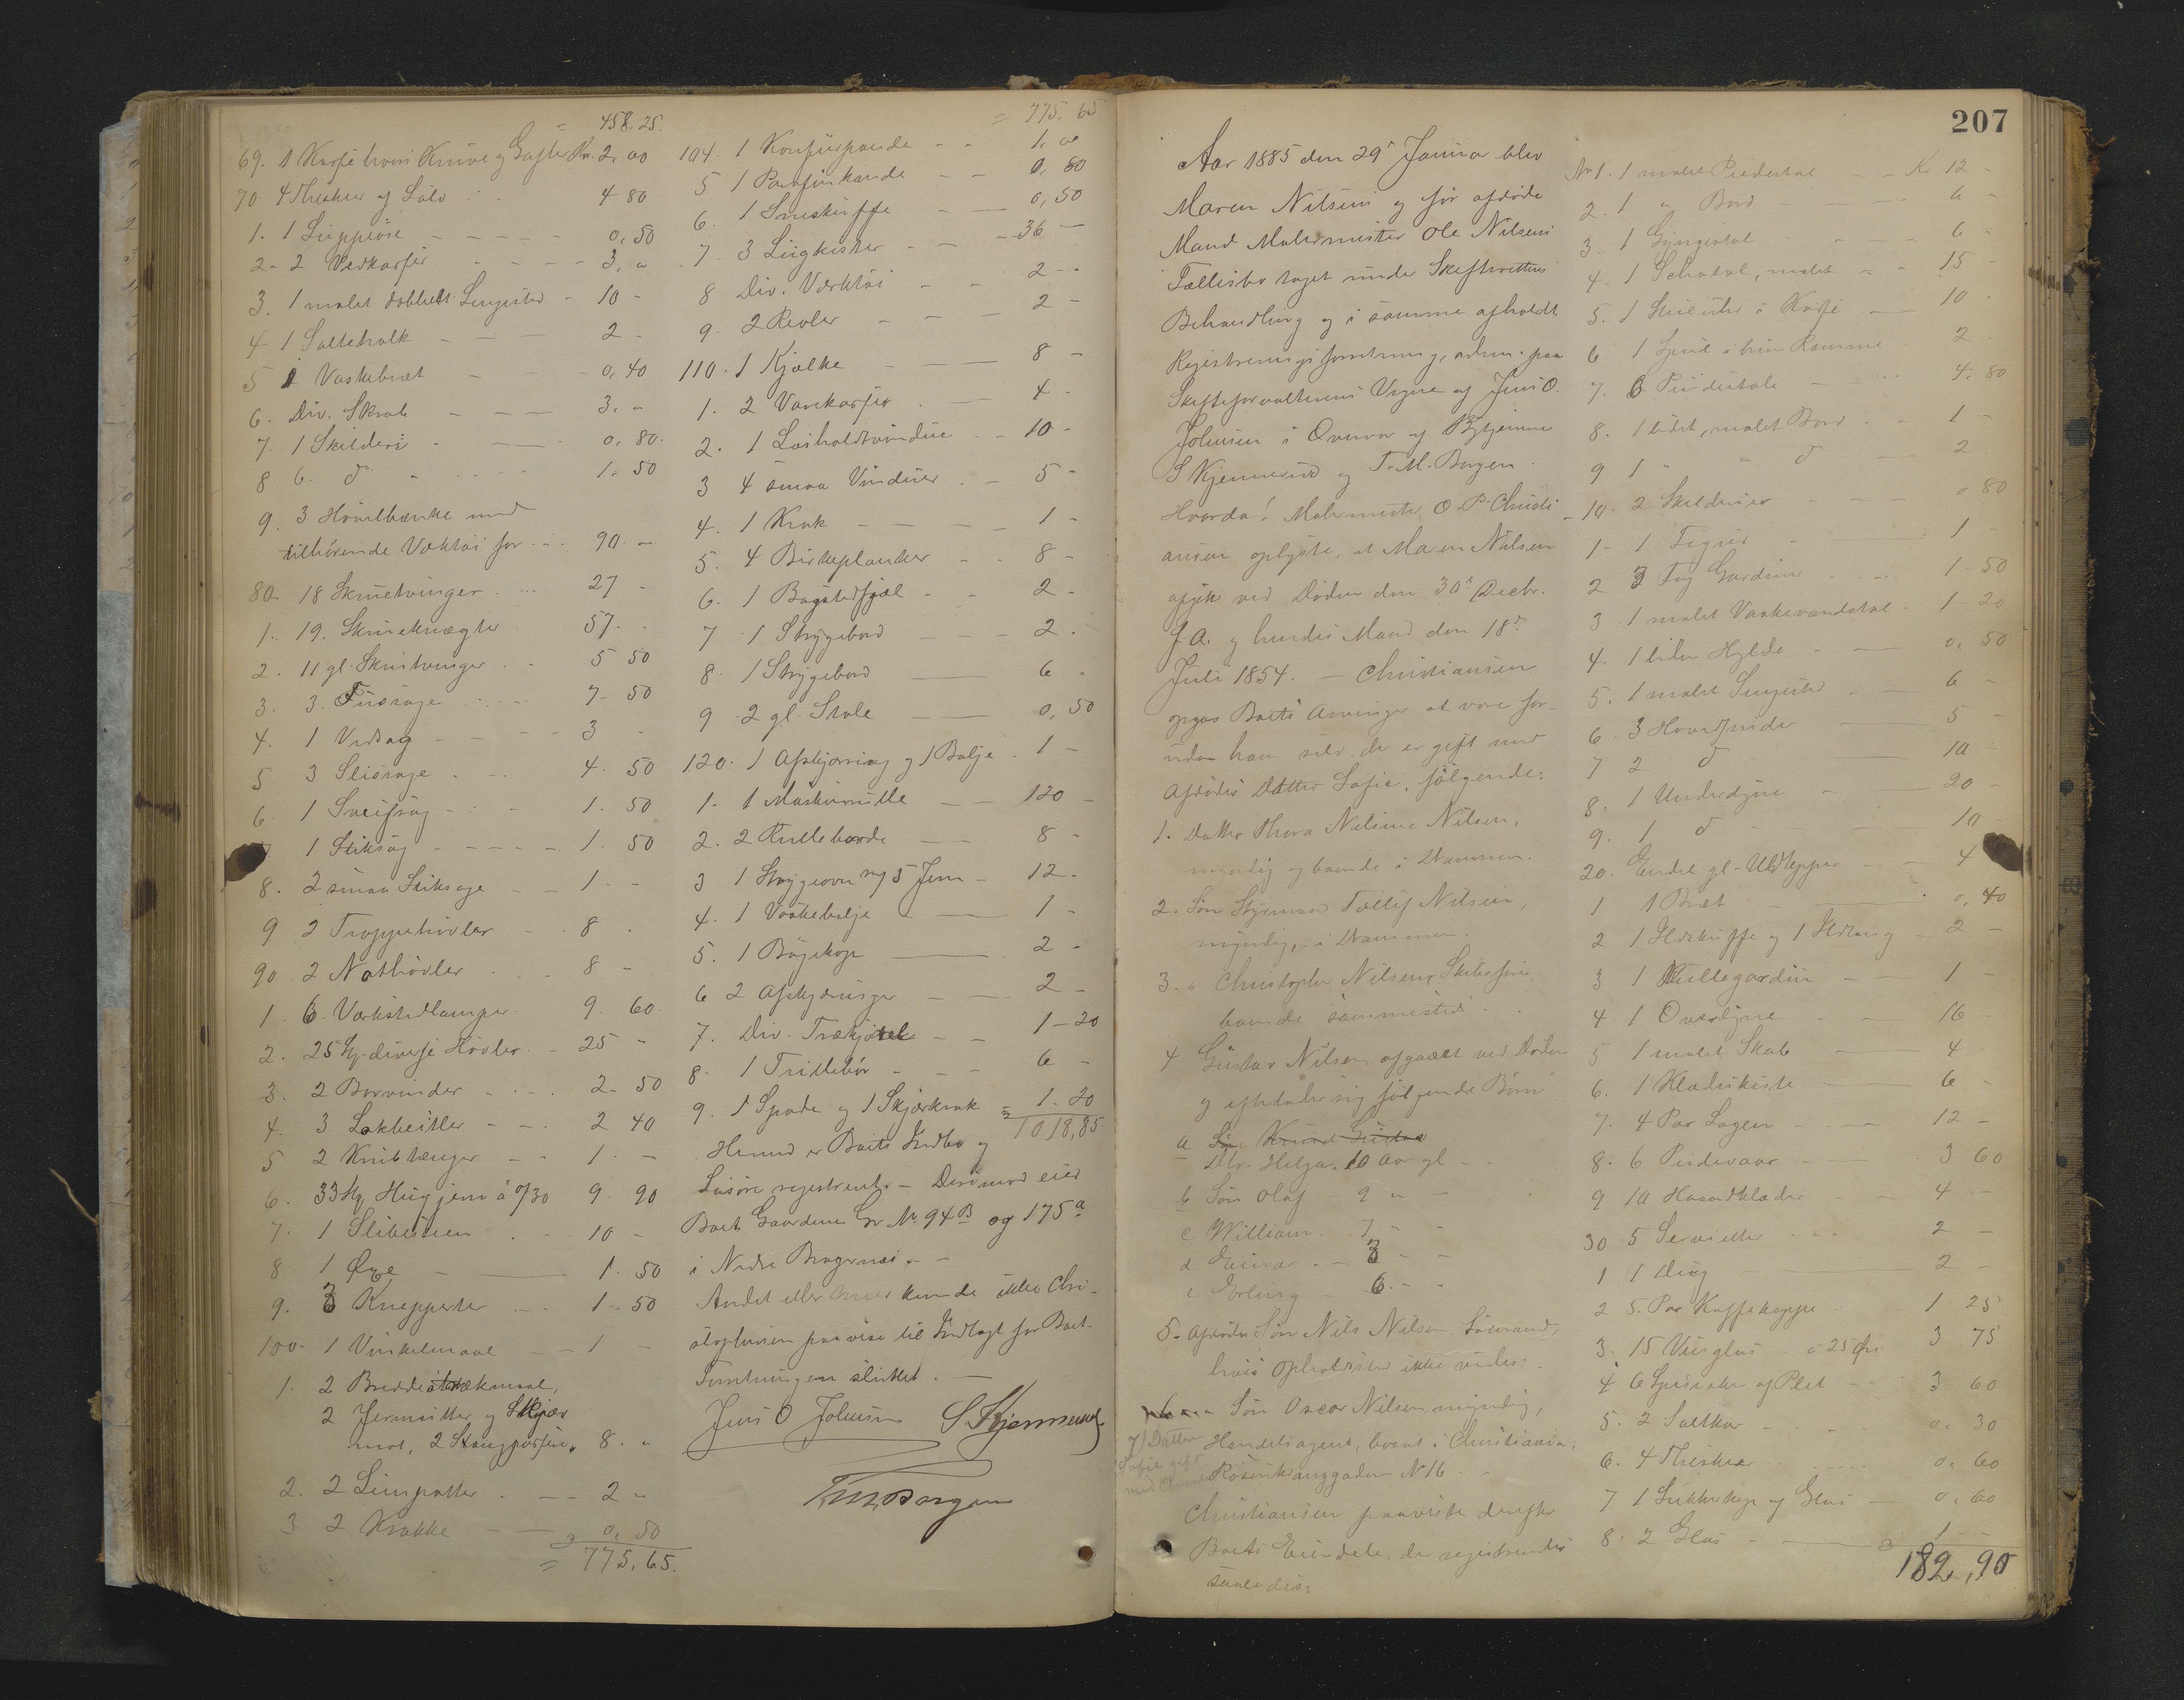 = 458. 25.
69. 1 Kurv hvori Knive og Gafler Kr. 2,00
70. 4 Theskeer af Sölv 4 80
1. 1 Suppeöse 0,50
2. 2 Vedkasser 3, "
3. 1 malet dobbelt Sengested 10 -
4 1 Saltehalk 2 -
5 1 Vaskebræt 0,40
6. Div. Skrab 3. "
7. 1 Skilderi 0,80.
8 6. do 1. 50
9. 3 Hövelbænke med
tilhörende Værktöi for 90. -
80. 18 Skruetvinger 27 -
1. 19. Skrueknægter 57. -
2. 11 gl. Skrutvinger 5 50
3. 3. Fussage 7- 50
4. 1 Vedsag 3 -
5 3 Slissage 4. 50
6. 1 Sveifsag 1. 50
7. 1 Stiksag 1. 50
8. 2 smaa Stiksage 1 -
9 2 Trappehövler 8 -
90 2 Nothövler 8 -
1. 6. Værkstedlamper 9. 60.
2. 25 St. diverse Hövler 25 -
3. 2 Borvinder 2- 50
4. 3 Lokbeitler 2 40
5 2 Knibtænger 1. -
6. 33 St. Hugjern á 0/30 9. 90
7. 1 Slibesteen 10 -
8 1 Öxe 1. 50
9. 3 Knepperter 1- 50
100. 1 Vinkelmaal 1 -
1. 2 Bredde
2 og
2 8. "
2. 2 Limpotter 2 "
3 2 Krakke 0,50
= 775,65.
= 775. 65
104. 1 1. 00
5 1 Parafinkande 0,80
6. 1 Sneskuffe 0,50
7. 3 Liigkister 36 -
8 Div. Værktöi 2 -
9. 2 Reoler 2 -
110. 1 Kjælke 8 -
1. 2 Varekasser 4 -
2. 1 10 -
3 4 smaa Vinduer 5 -
4. 1 Krak 1 -
5. 4 Birkeplanker 8 -
6. 1 Bagstefjæl 2 -
7 1 Strygebord 2.
8. 1 Strygebord 6 -
9 2 gl. Stole 0,50
120. 1 og 1 Balje 1 -
1. 1 Maskinrulle 120 -
2. 2 Rulleborde 8 -
3 1 Strygeovn m/ 5 Jern 12 -
4. 1 Vaskebalje 1 -
5. 1 Bögekop 2 -
6 2 2 -
7. Div. 1-20
8. 1 Trillebör 6 -
9. 1 Spade og 1 Skjærkrak 1. 20
= 1018,85.
Hermed er Boets Indbo og
Lösöre registreret. - Derimod eier
Boet Gaardene Gr. No. 94 B og 175 a
i Nedre Bragernæs. -
Andet eller meer kunde ikke Chri-
stophersen paavise til Indtægt for Boet.
Forretningen sluttet. -
Jens O Johnsen S. Kjennerud
T. M. Borgen
207
Aar 1885 den 29de Januar blev
Maren Nilsens og för afdöde
Mand Malermester Ole Nilsens
Fællisbo taget under Skifterettens
Behandling og i samme afholdt
Registreringsforretning, adm. paa
Skifteforvalterens Vegne af Jens O
Johnsen i Overvær af
S Kjennerud og T. M. Borgen.
Hvorda! Malermester O. P. Christi-
ansen oplyste, at Maren Nilsen
afgik ved Döden den 30te Decbr.
f. A. og hendes Mand den 18de
Juli 1854. - Christiansen
opgav Boets Arvinger at være for-
uden ham selv, der er gift med
Afdödes Datter Sofie, fölgende:
1. Datter Thora Nilsine Nilsen,
myndig og boende i Drammen.
2. Sön Styrmand Tollef Nilsen,
myndig, i Drammen.
3. " Christopher Nilsen, Skibsförer
boende sammesteds.
4 Gustav Nilsen afgaaet ved Döden
og efterlader sig fölgende Börn
a Sön Knud Gustav
Dtr. Helga. 10 Aar gl -
b Sön Olaf 9 " -
c William. 7 " -
d Einar. - 3 - -
e Erling - 6. - -
5. Afdödes Sön Nils Nilsen Sömand,
hvis Opholdsted ikke vides.
6. Sön Oscar Nilsen myndig,
Handelsagent, bosat i Christiania,
Rosenkranzgaden No 16.
7/ Datter
Sofie gift
med
Christiansen paaviste derefter
Boets Eiendele, der registreredes
saaledes:
No 1. 1 malet Piedestal Kr. 12 -
2. 1 " Bord 4 -
3. 1 Gyngestol 6 -
4. 1 Schatol, malet 15 -
5. 1 Stueuhr i Kasse 10 -
6. 1 Speil i brun Ramme 2
7. 6 Pindestole 4. 80
8. 1 lidet, malet Bord 1 -
9 1 " " do 2
10. 2 Skilderier 0 80
1. 1 Figur 1 -
2 3 Fag Gardiner 1- 50
3 1 malet Vaskevandstol 1- 20
4. 1 liden Hylde 0. 50
5. 1 malet Sengested 6 -
6. 3 Hovedpuder 5 -
7 2 do 10
8. 1 Underdyne 20 -
9. 1 do 10 -
20. Endel gl. Uldtepper 4
1 1 Bræt 0,40
2 1 Ildskuffe og 1 Ildtang 2 -
3 1 Rullegardin 1 -
4 1 Overdyne 16
5 1 malet Skab 4
6. 1 Klædeskiste 6 -
7. 4 Par Lagen 12 -
8. 6 Pudevaar 3 60
9 10 Haandklæder 4 -
30 5 Servietter 2 -
1 1 Dug 2 -
2 5. Par Kaffekopper 1 25
3. 15 Vinglas á 25 Öre 3 75
4 6 Spiseskeer af Plet 3 60
5. 2 Saltkar 0. 30
6. 4 Theskeer 0. 60
7 1 Sukkerkop af Glas 0. 60
8. 2 Glas 1
182,90